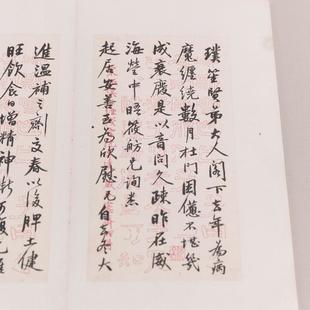 璞笙賢弟大人閣下去年為病
魔纏繞數月杜門困憊不堪幾
成衰廢是以音問久疎昨在威
海營中晤筱舫兄詢悉
起居安善至為欣慰兄自去冬大
進溫補之劑交春以後脾土健
旺飲食日增精神漸可復元